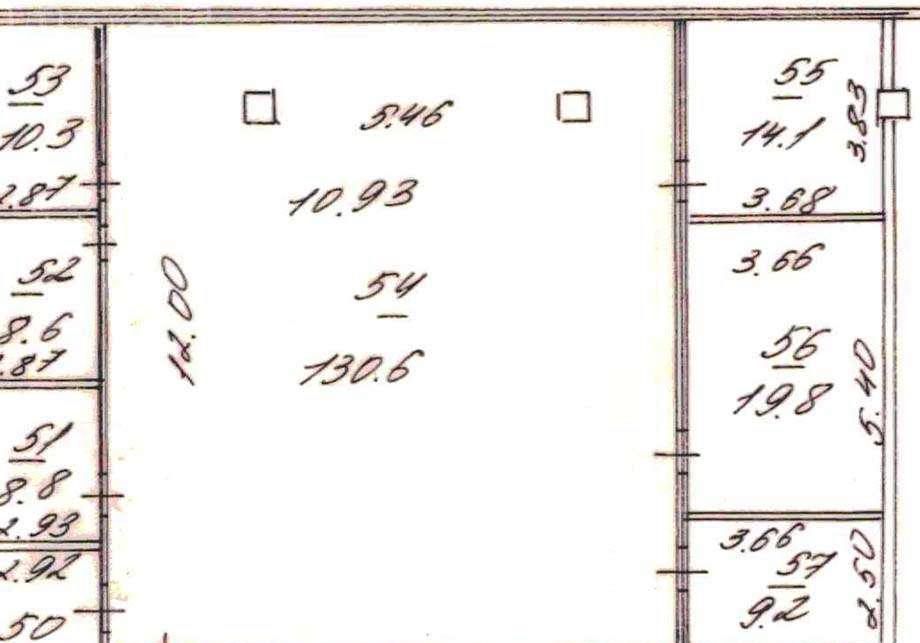 53
10.3
2.87
52
8.6
2.87
51
8.8
2.93
2.92
50
5.46
10.93
12.00
54
130.6
55
14.1
3.83
3.68
3.66
56
19.8
5.40
3.66
57
9.2
2.50